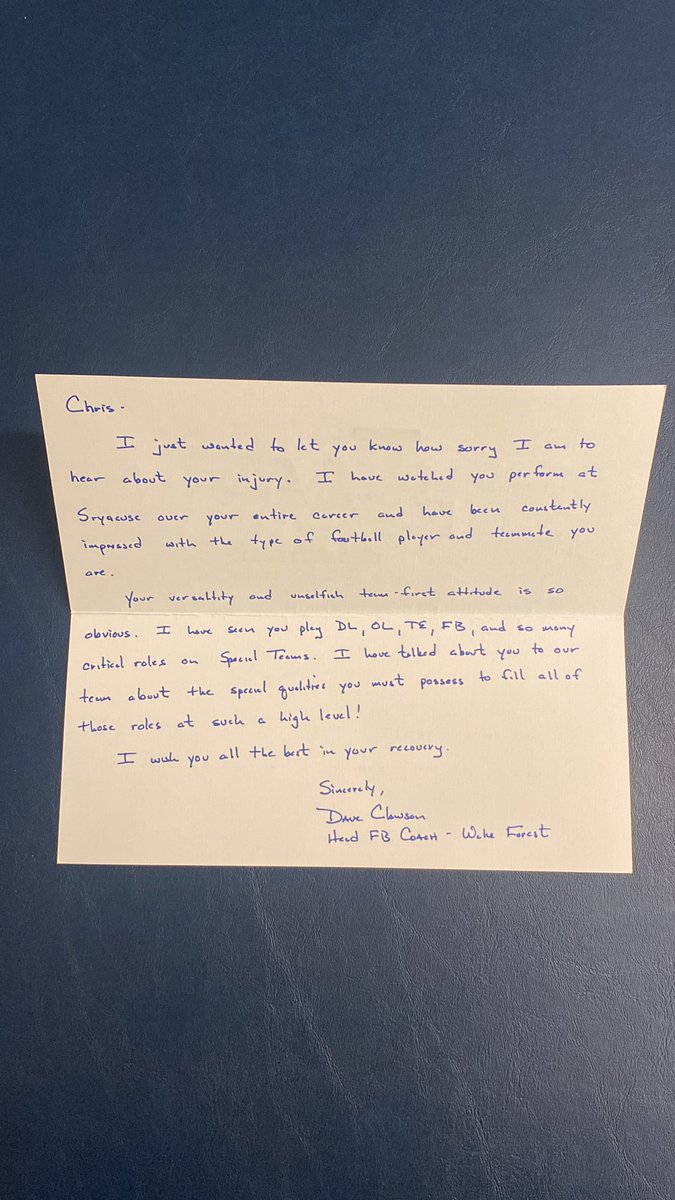 Chris-
I just wanted to let you know how sorry I am to
hear about your injury. I have watched you perform at
Sryacuse over your entire career and have been constantly
impressed with the type of football player and teammate you
are.
Your versaltity and unselfish team-first attitude is so
obvious. I have seen you play DL, OL, TE, FB, and so many
critical roles on Special Teams. I have talked about you to our
team about the special qualities you must possess to fill all of
those roles at such a high level!
I wish you all the best in your recovery.
Sincerely,
Dave Clawson
Head FB COACH - Wake Forest